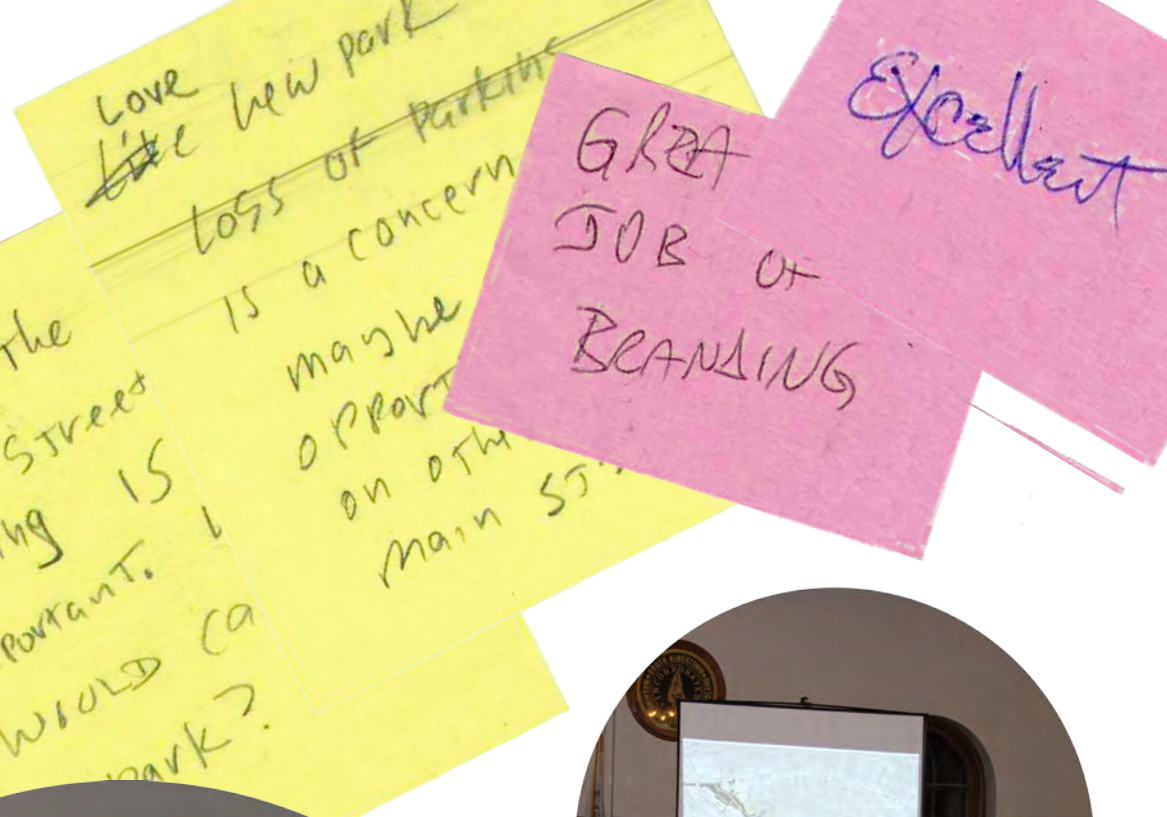 Love
new park
loss of parking
is a concern
maybe
opport
on oth
main st
GREA
JOB OF
BRANDING
Excellent
the
street
ing is
portant. I
would ca
park?
INCORPORATED